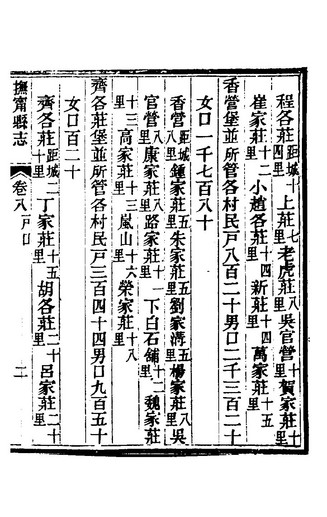 程各莊距城十四里上莊七里老虎莊八里吳官營十里賀家莊十里
崔家莊十二里小趙各莊十四里新莊十四里萬家莊十五里
香營堡並所管各村民戶八百二十男口二千三百二十
女口一千七百八十
香營距城八里鍾家莊八里朱家莊五里劉家溝五里楊家莊八里吳
官營八里康家莊八里路家莊十一里下白石舖十二里魏家莊
十三里高家莊十三里嵐山十六里榮家莊十八里
齊各莊堡並所管各村民戶三百四十四男口九百五十
女口百二十
齊各莊距城二十里丁家莊十五里胡各莊二十里呂家莊二十里
撫甯縣志 卷八 戶口 二